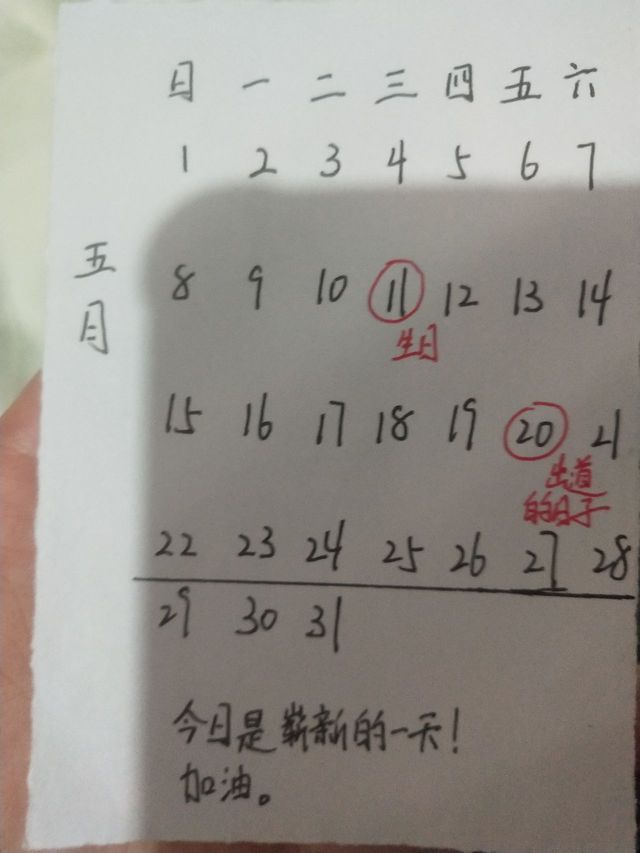 日 一 二 三 四 五 六
1 2 3 4 5 6 7
五月
8 9 10 11 12 13 14
生日
15 16 17 18 19 20 21
出道
的日子
22 23 24 25 26 27 28
29 30 31
今日是崭新的一天！
加油。